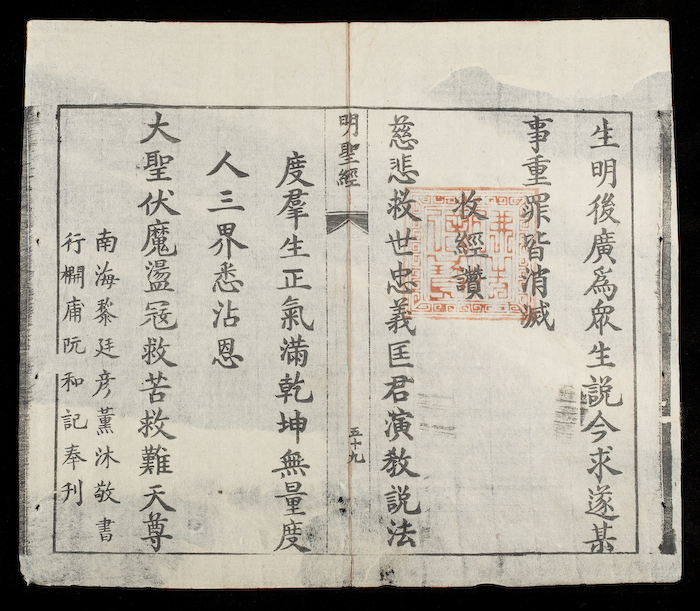 生明後廣爲眾生説今求遂某
事重罪皆消滅
收經讚
慈悲救世忠義匡君演教説法
明聖經
五十九
度羣生正氣滿乾坤無量度
人三界悉沾恩
大聖伏魔盪冦救苦救難天尊
南海黎廷彦薰沐敬書
行欄庸阮和記奉刊